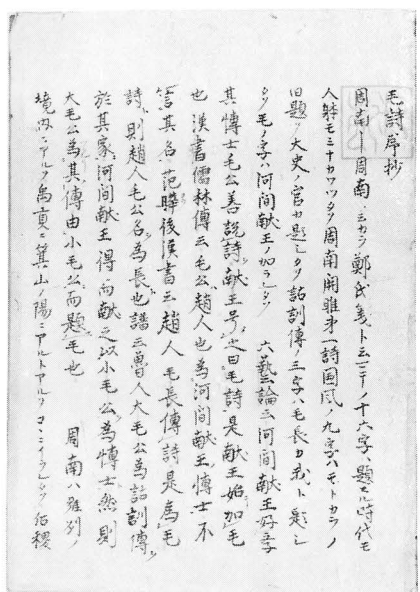 毛詩序抄
周南ト周南ノミカラ鄭氏箋ト云マテノ十六字ハ題セル時代モ
人躰モミナカワツタソ周南關雎第一詩国風ノ九字ハモトカラノ
旧題ソ大史ノ官カ題シタソ詁訓傳ノ三字ハ毛長カ題シ
タソ毛ノ字ハ河間献王ノ加ラレタソ 六藝論云河間献王好学
其博士毛公善説詩献王号之曰毛詩是献王始加毛
也漢書儒林傳云毛公趙人也為河間献王博士不
言其名范曄後漢書云趙人毛長傳詩是為毛
詩則趙人毛公名為長也譜云魯人大毛公為詁訓傳
於其家河間献王得而献之以小毛公為博士然則
大毛公為其傳由小毛公而題毛也 周南ハ雍州ノ
境内ニアルソ禹貢ニ箕山陽ニアルトアルソコヽニイラレタソ后稷